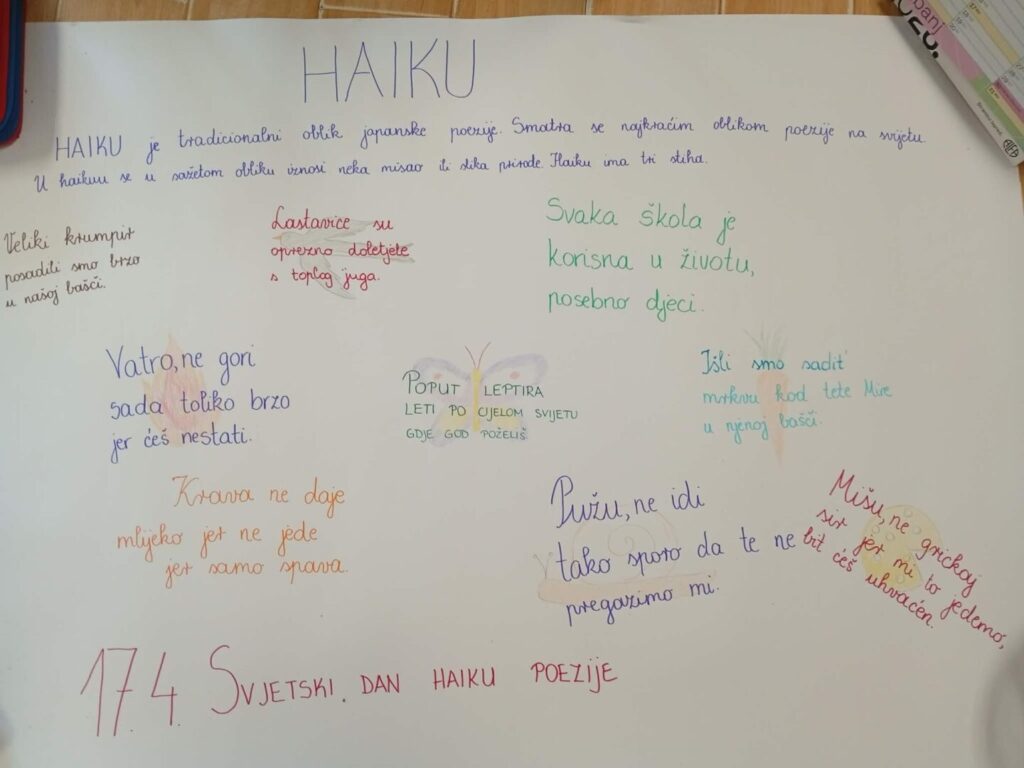 HAIKU
HAIKU je tradicionalni oblik japanske poezije. Smatra se najkraćim oblikom poezije na svijetu.
U haikuu se u sažetom obliku iznosi neka misao ili slika prirode. Haiku ima tri stiha.
Veliki krumpir
posadili smo brzo
u našoj bašči.
Lastavice su
oprezno doletjele
s toplog juga.
Svaka škola je
korisna u životu,
posebno djeci.
Vatro, ne gori
sada toliko brzo
jer ćeš nestati.
POPUT LEPTIRA
LETI PO CIJELOM SVIJETU
GDJE GOD POŽELIŠ.
Išli smo sadit
mrkvu kod tete Mire
u njenoj bašči.
Krava ne daje
mlijeko jer ne jede
jer samo spava.
Pužu, ne idi
tako sporo da te ne
pregazimo mi.
Mišu, ne grickaj
sir jer mi to jedemo,
bit ćeš uhvaćen.
17.4. SVJETSKI DAN HAIKU POEZIJE
panj
2026.